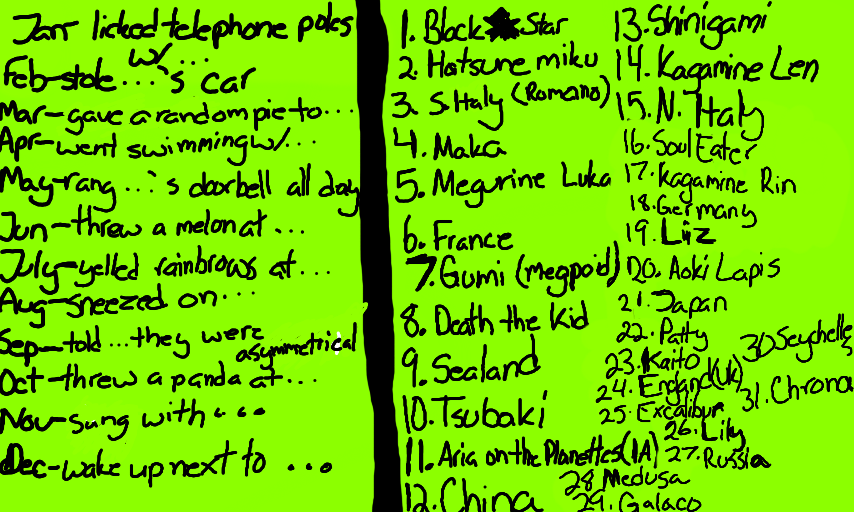 Jan licked telephone poles
w/...
Feb-stole ...'s car
Mar-gave a random pie to...
Apr-went swimming w/...
May-rang ...'s doorbell all day
Jun-threw a melon at ...
July-yelled rainbrows at...
Aug-sneezed on...
Sep-told ...they were
asymmetrical
Oct-threw a panda at...
Nov-sung with ...
Dec-wake up next to ...
1. Black★Star
2. Hatsune miku
3. S.Italy (Romano)
4. Maka
5. Megurine Luka
6. France
7. Gumi (megpoid)
8. Death the Kid
9. Sealand
10. Tsubaki
11. Aria on the Planettes(IA)
12. China
13. Shinigami
14. Kagamine Len
15. N. Italy
16. Soul Eater
17. Kagamine Rin
18. Germany
19. Liz
20. Aoki Lapis
21. Japan
22. Patty
23. Kaito
24. England(UK)
25. Excalibur
26. Lily
27. Russia
28. Medusa
29. Galaco
30. Seychelles
31. Chrona